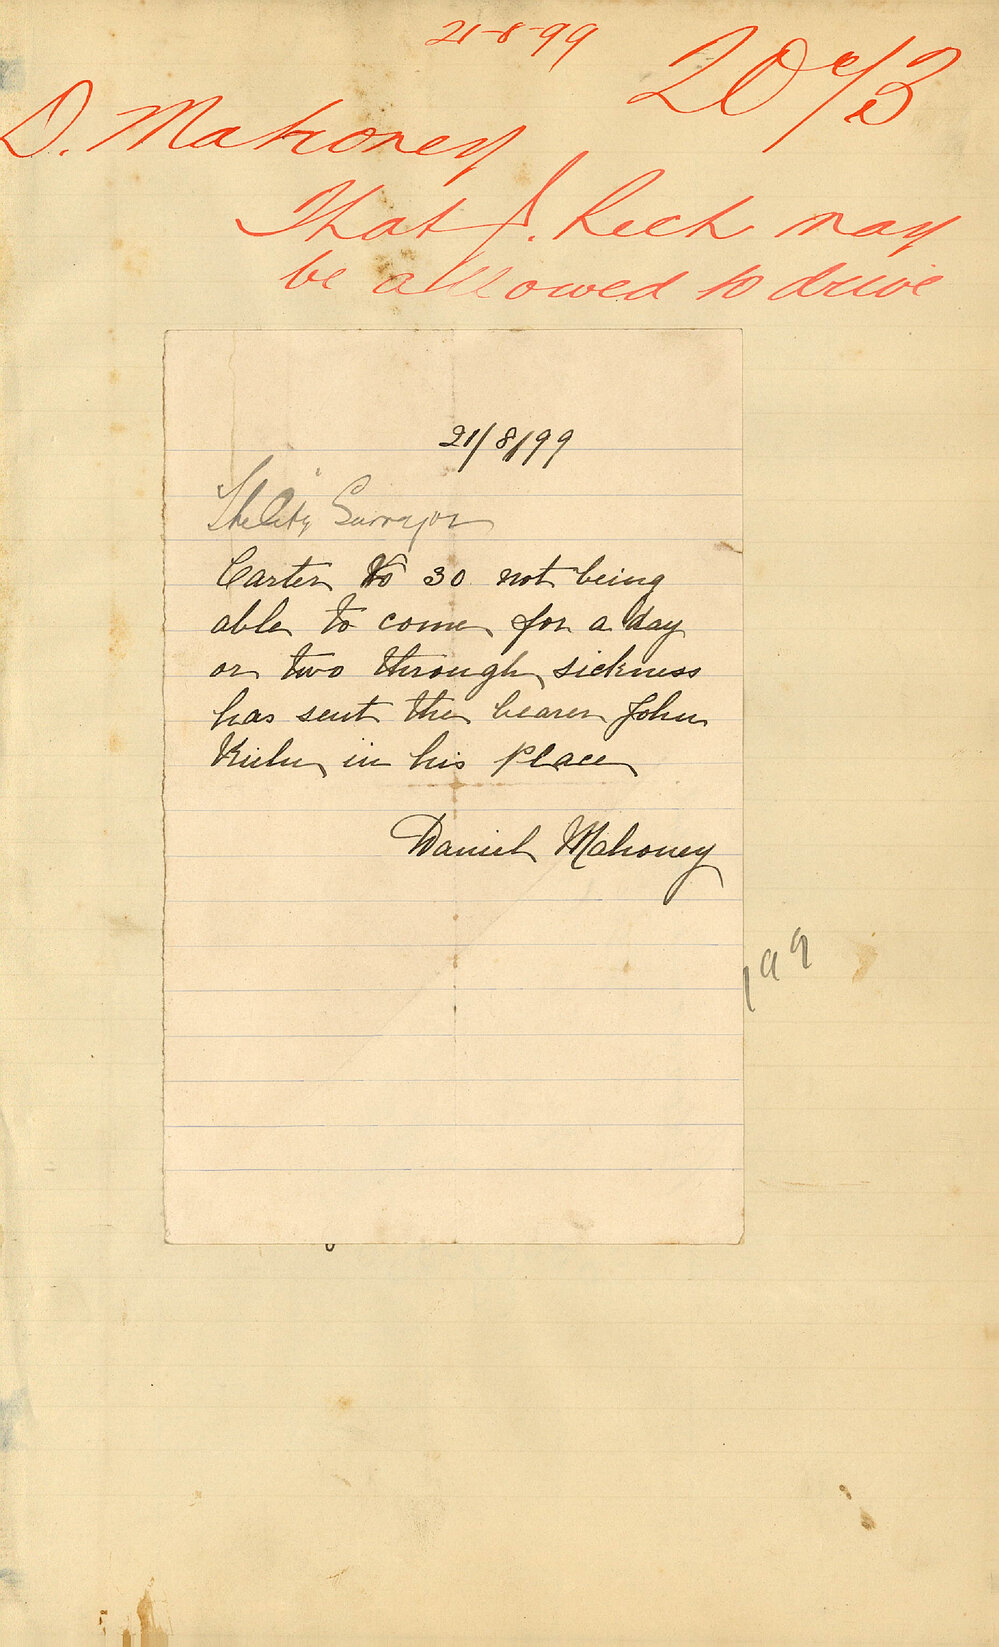 21-8-99
D. Mahoney
That J. may
be allowed to drive
21/8/99
The City Surveyor
Carter No 30 not being
able to come for a day
or two through sickness
has sent the bearer John
in his place
Daniel Mahoney
99